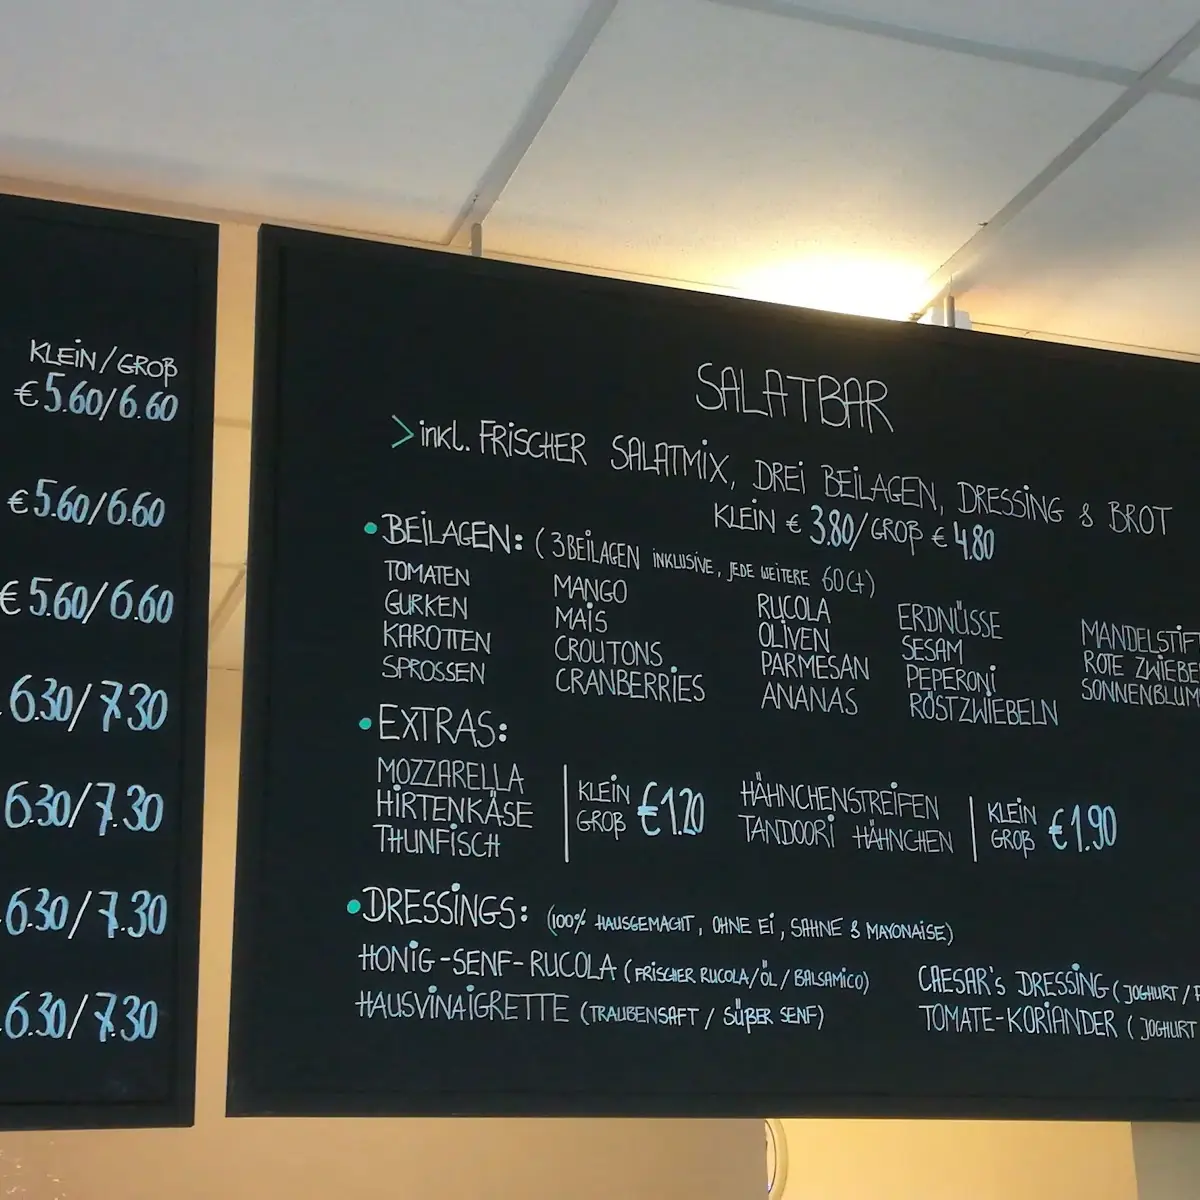 KLEIN/GROß
€5.60/6.60
€5.60/6.60
€5.60/6.60
6.30/7.30
6.30/7.30
6.30/7.30
6.30/7.30
SALATBAR
>inkl. FRISCHER SALATMIX, DREI BEILAGEN, DRESSING & BROT
KLEIN € 3.80/GROß € 4.80
•BEILAGEN: (3 BEILAGEN INKLUSIVE, JEDE WEITERE 60Ct)
TOMATEN MANGO RUCOLA ERDNÜSSE MANDELSTIF
GURKEN MAIS OLIVEN SESAM ROTE ZWIEBE
KAROTTEN CROUTONS PARMESAN PEPERONI SONNENBLUM
SPROSSEN CRANBERRIES ANANAS RÖSTZWIEBELN
•EXTRAS:
MOZZARELLA KLEIN HÄHNCHENSTREIFEN KLEIN
HIRTENKÄSE GROß €1.20 TANDOORI HÄHNCHEN GROß €1.90
THUNFISCH
•DRESSINGS: (100% HAUSGEMACHT, OHNE EI, SAHNE & MAYONAISE)
HONIG-SENF-RUCOLA (FRISCHER RUCOLA/ÖL/BALSAMICO) CAESAR's DRESSING (JOGHURT/
HAUSVINAIGRETTE (TRAUBENSAFT / SÜßER SENF) TOMATE-KORIANDER (JOGHURT